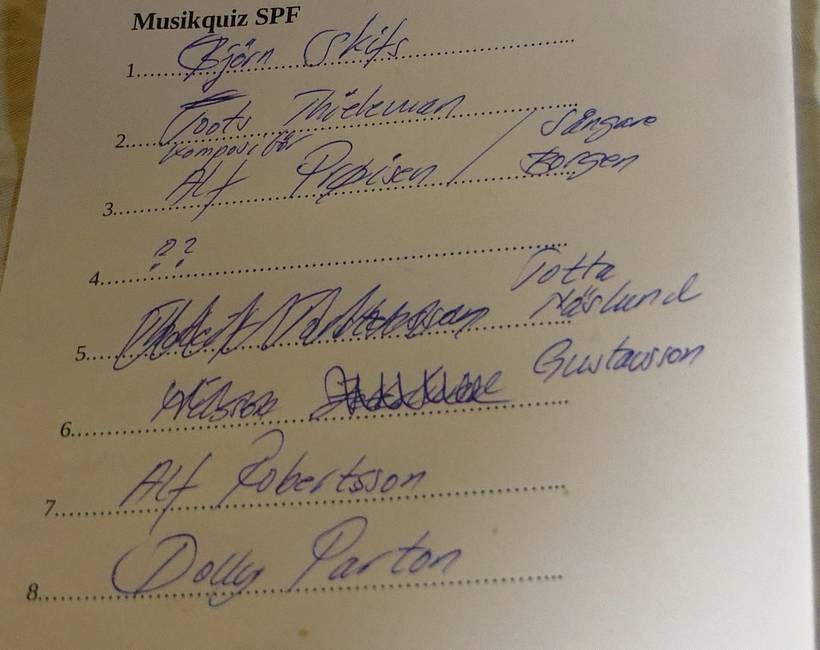 Musikquiz SPF
1. Björn Skifs
2. Toots Thieleman
kompositör Sångare
3. Alf Prøisen / Borgen
4. ??
5. Totta Näslund
6. Gustavsson
7. Alf Robertsson
8. Dolly Parton